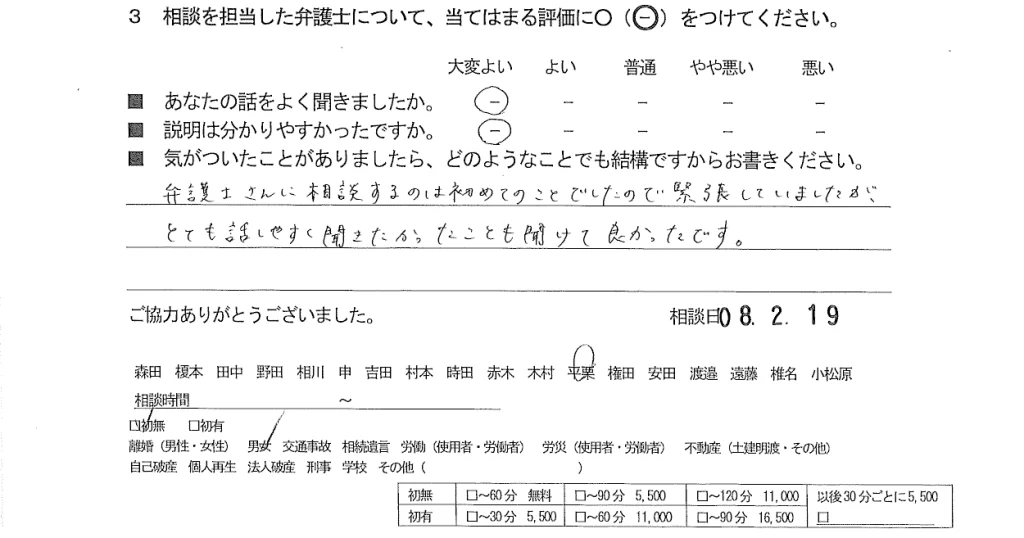 3 相談を担当した弁護士について、当てはまる評価に○(㊀)をつけてください。
大変よい よい 普通 やや悪い 悪い
■ あなたの話をよく聞きましたか。 － － － － －
■ 説明は分かりやすかったですか。 － － － － －
■ 気がついたことがありましたら、どのようなことでも結構ですからお書きください。
弁護士さんに相談するのは初めてのことでしたので緊張していましたが、
とても話しやすく聞きたかったことも聞けて良かったです。
ご協力ありがとうございました。 相談日08.2.19
森田 榎本 田中 野田 相川 申 吉田 村本 時田 赤木 木村 平栗 権田 安田 渡邉 遠藤 椎名 小松原
相談時間 ～
□初無 □初有
離婚（男性・女性） 男女 交通事故 相続遺言 労働（使用者・労働者） 労災（使用者・労働者） 不動産（土建明渡・その他）
自己破産 個人再生 法人破産 刑事 学校 その他（ ）
初無 □～60分 無料 □～90分 5,500 □～120分 11,000 以後30分ごとに5,500
初有 □～30分 5,500 □～60分 11,000 □～90分 16,500 □